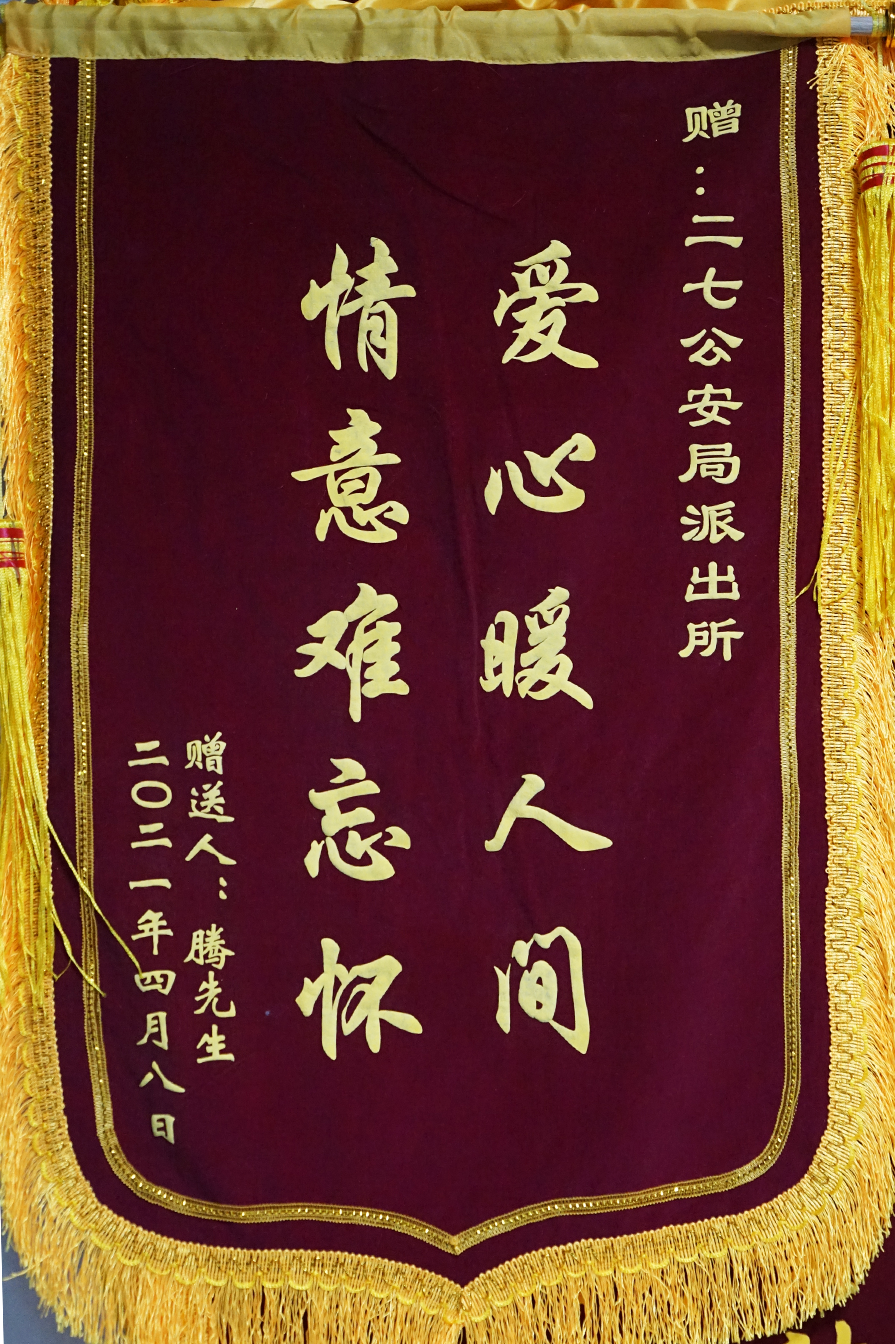 赠：二七公安局派出所
爱心暖人间
情意难忘怀
赠送人：腾先生
二〇二一年四月八日